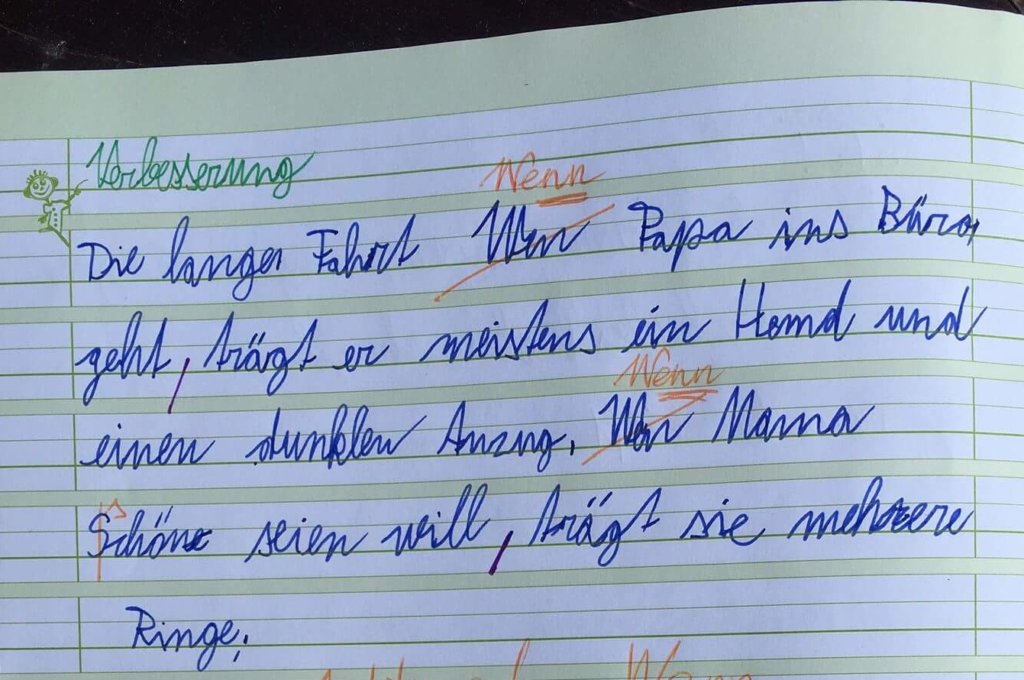 Verbesserung
Wenn
Die langer Fahrt Wen Papa ins Büro,
geht, trägt er meistens ein Hemd und
Wenn
einen dunklen Anzug. Wen Mama
s
Schöne seien will, trägt sie mehrere
Ringe.